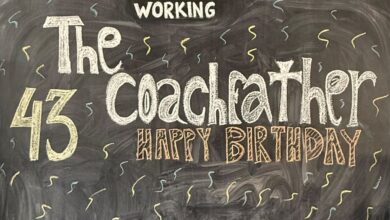 WORKING
The
43 Coachfather
HAPPY BIRTHDAY